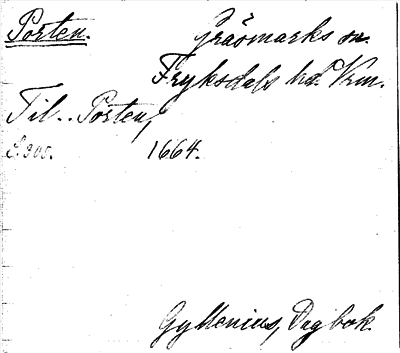 Porten. Gräsmarks sn.
Fryksdals hd. Vrm.
Til.. Porten,
S. 305. 1664.
Gyllenius, Dagbok.